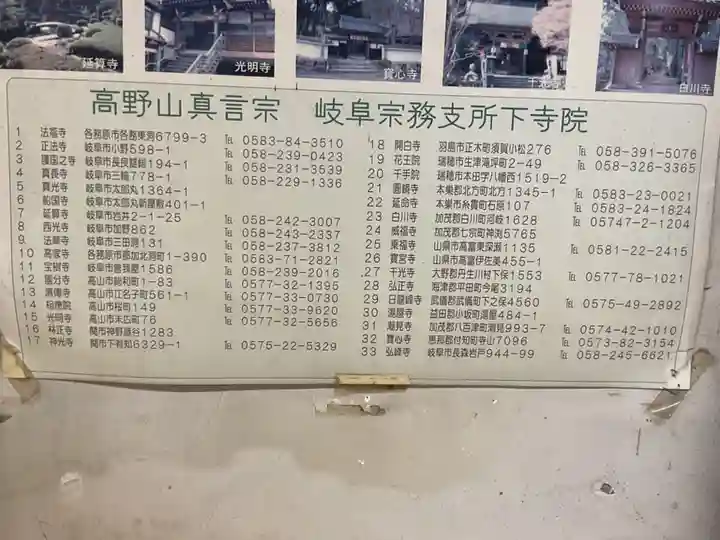 延算寺
光明寺
寶心寺
白川寺
高野山真言宗 岐阜宗務支所下寺院
1 法福寺 各務原市各務東洞6799-3 ℡ 0583-84-3510
2 正法寺 岐阜市小野598-1 ℡ 058-239-0423
3 護国之寺 岐阜市長良雄総194-1 ℡ 058-231-3539
4 真長寺 岐阜市三輪778-1 ℡ 058-229-1336
5 寶光寺 岐阜市太郎丸1364-1
6 船国寺 岐阜市太郎丸新屋敷401-1
7 延算寺 岐阜市岩井2-1-25 ℡ 058-242-3007
8 西光寺 岐阜市加野862 ℡ 058-243-2337
9 法華寺 岐阜市三田洞131 ℡ 058-237-3812
10 高家寺 各務原市那加北洞町1-390 ℡ 0583-71-2821
11 宝樹寺 岐阜市曽我屋1586 ℡ 058-239-2016
12 国分寺 高山市総和町1-83 ℡ 0577-32-1395
13 清傳寺 高山市江名子町561-1 ℡ 0577-33-0730
14 相應院 高山市桜町149 ℡ 0577-33-9620
15 光明寺 高山市末広町76 ℡ 0577-32-5656
16 林正寺 関市神野藤谷1283
17 神光寺 関市下有知6329-1 ℡ 0575-22-5329
18 開白寺 羽島市正木町須賀小松276 ℡ 058-391-5076
19 花王院 瑞穂市生津滝坪町2-49 ℡ 058-326-3365
20 千手院 瑞穂市本田字八幡西1519-2
21 圓鏡寺 本巣郡北方町北方1345-1 ℡ 0583-23-0021
22 延命寺 本巣市糸貫町石原107 ℡ 0583-24-1824
23 白川寺 加茂郡白川町河岐1628 ℡ 05747-2-1204
24 威福寺 加茂郡七宗町神渕5765
25 東福寺 山県市高富東深瀬1135 ℡ 0581-22-2415
26 寶宮寺 山県市高富伊佐美455-1
27 千光寺 大野郡丹生川村下保1553 ℡ 0577-78-1021
28 弘正寺 海津郡平田町今尾3194
29 日龍峰寺 武儀郡武儀町下之保4560 ℡ 0575-49-2892
30 湯屋寺 益田郡小坂町湯屋484-1
31 潮見寺 加茂郡八百津町潮見993-7 ℡ 0574-42-1010
32 寶心寺 恵那郡付知町寺山7096 ℡ 0573-82-3154
33 弘峰寺 岐阜市長森岩戸944-99 ℡ 058-245-6621